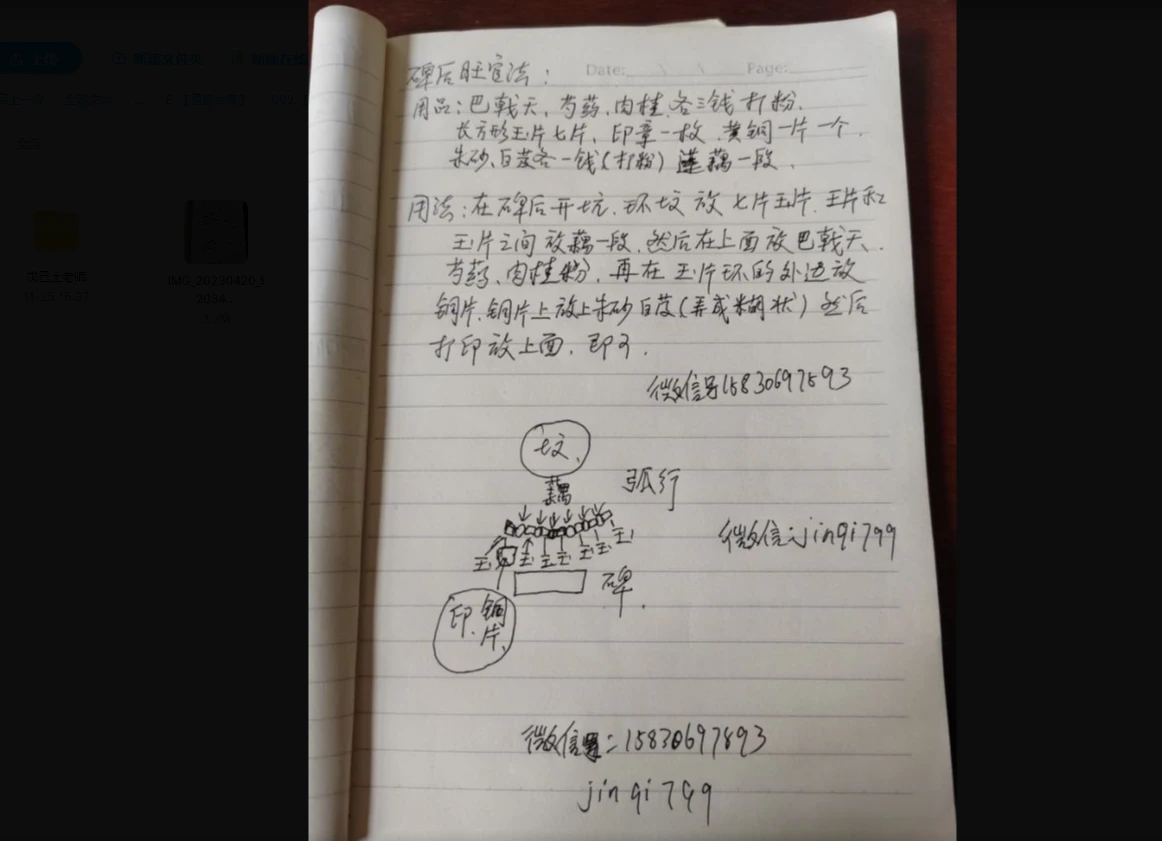 新建文件夹
碑后旺官法：
Date: Page:
用品：巴戟天、芍药、肉桂、各三钱打粉、
长方形玉片七片、印章一枚、黄铜一片一个、
朱砂、白芨各一钱(打粉) 莲藕一段、
用法：在碑后开坑、环坟放七片玉片、玉片和
玉片之间放藕一段、然后在上面放巴戟天、
芍药、肉桂粉、再在玉片环的外边放
铜片、铜片上放上朱砂白芨(弄成糊状)然后
打印放上面、即可、
微信号15830697593
坟、
藕
弧行
玉 玉 玉 玉 玉 玉 玉
微信：jinqi799
碑、
印、铜片、
微信号：15830697893
jinqi799
IMG_20230420_1